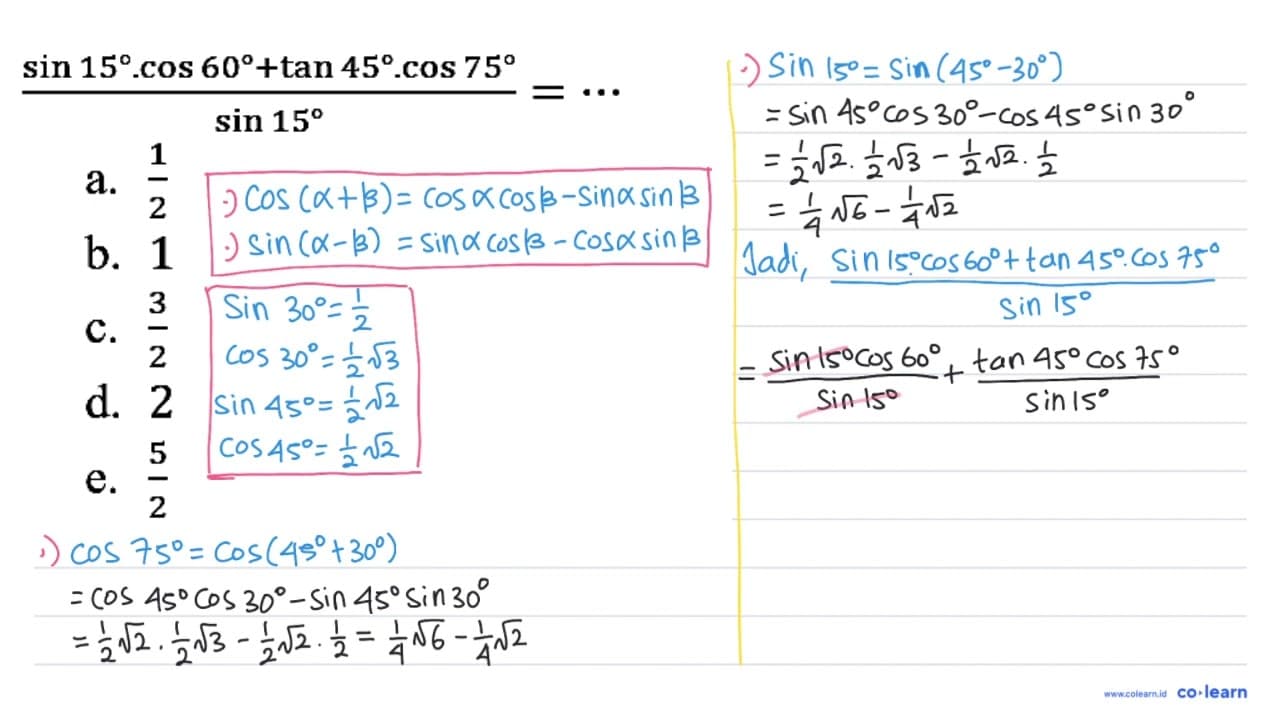 sin 15°.cos 60°+tan 45°.cos 75°
sin 15°
= ...
a. 1/2
b. 1
c. 3/2
d. 2
e. 5/2
·) cos (α+β) = cos α cos β - sin α sin β
·) sin (α-β) = sin α cos β - cos α sin β
Sin 30° = 1/2
cos 30° = 1/2 √3
Sin 45° = 1/2 √2
Cos 45° = 1/2 √2
·) cos 75° = cos (45° + 30°)
= cos 45° cos 30° - sin 45° sin 30°
= 1/2 √2 . 1/2 √3 - 1/2 √2 . 1/2 = 1/4 √6 - 1/4 √2
·) Sin 15° = sin (45° - 30°)
= sin 45° cos 30° - cos 45° sin 30°
= 1/2 √2 . 1/2 √3 - 1/2 √2 . 1/2
= 1/4 √6 - 1/4 √2
Jadi, sin 15°.cos 60° + tan 45°.cos 75°
sin 15°
= sin 15° cos 60° + tan 45° cos 75°
sin 15° sin 15°
www.colearn.id co·learn